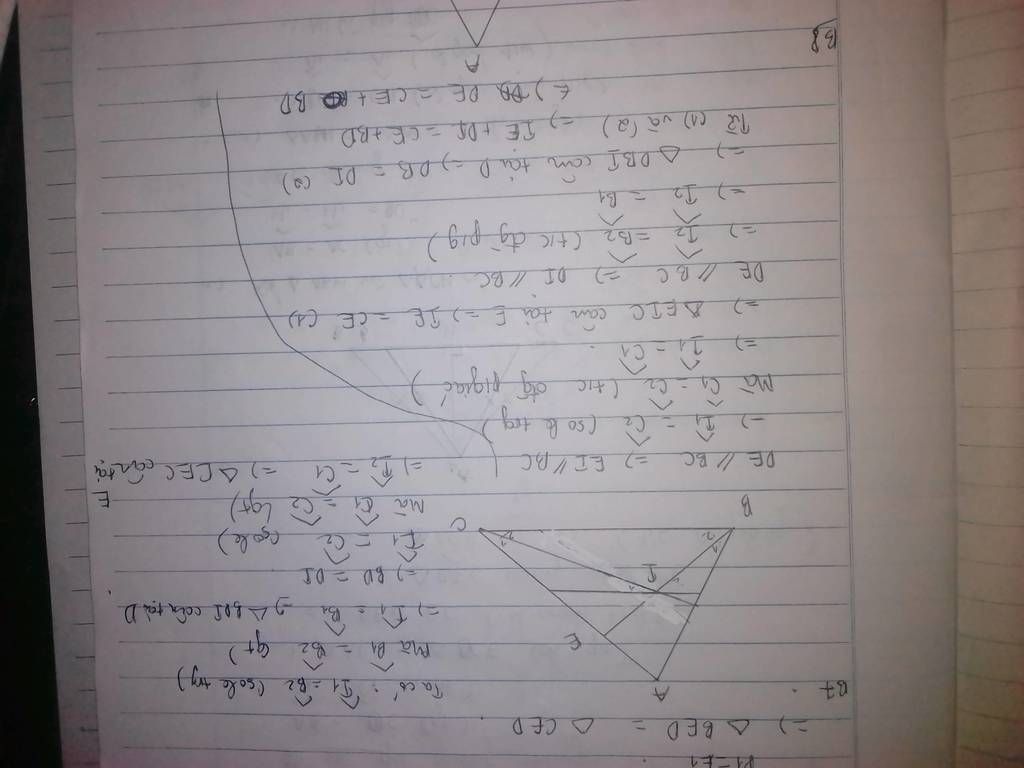 D1 = E1
=) △ BED = △ CED
B7
A
E
I
B
C
1
2
1
2
Ta có : I1 = B2 (sole trg)
Mà B1 = B2 (gt)
=) I1 = B1 =) △ BDI cân tại D
=) BD = DI
I1 = C2 (sole)
Mà C1 = C2 (gt)
=) I2 = C1 =) △ IEC cân tại E
DE // BC =) EI // BC
=) I1 = C2 (so le trg)
Mà C1 = C2 (t/c đg p/giác)
=) I1 = C1
=) △ EIC cân tại E =) IE = CE (1)
DE // BC =) DI // BC
=) I2 = B2 (t/c đg p/g)
=) I2 = B1
=) △ DBI cân tại D =) DB = DI (2)
Từ (1) và (2) =) IE + DI = CE + BD
(=) DE = CE + BD
B8
A